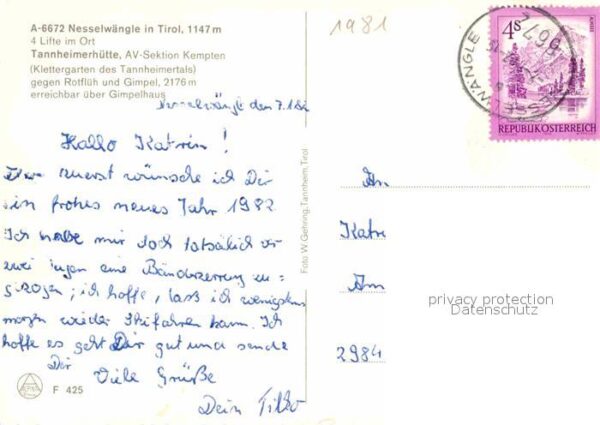 A-6672 Nesselwängle in Tirol, 1147 m
4 Lifte im Ort
Tannheimerhütte, AV-Sektion Kempten
(Klettergarten des Tannheimertals)
gegen Rotflüh und Gimpel, 2176 m
erreichbar über Gimpelhaus
1981
Nesselwängle den 7.1.82
Hallo Katrin!
zuerst wünsche ich Dir
ein frohes neues Jahr 1982
Ich habe mir doch tatsälich vor
zwei tagen eine Bänderzerrung zu=
gezogen; ich hoffe, daß ich wenigstens
morgen wieder Skifahren kann. Ich
hoffe es geht Dir gut und sende
Dir Viele Grüße
Dein Tilko
F 425
Foto W. Gehring, Tannheim, Tirol
4 S
REPUBLIK ÖSTERREICH
6672 NESSELWÄNGLE
An
Katri
Am
2984
privacy protection
Datenschutz